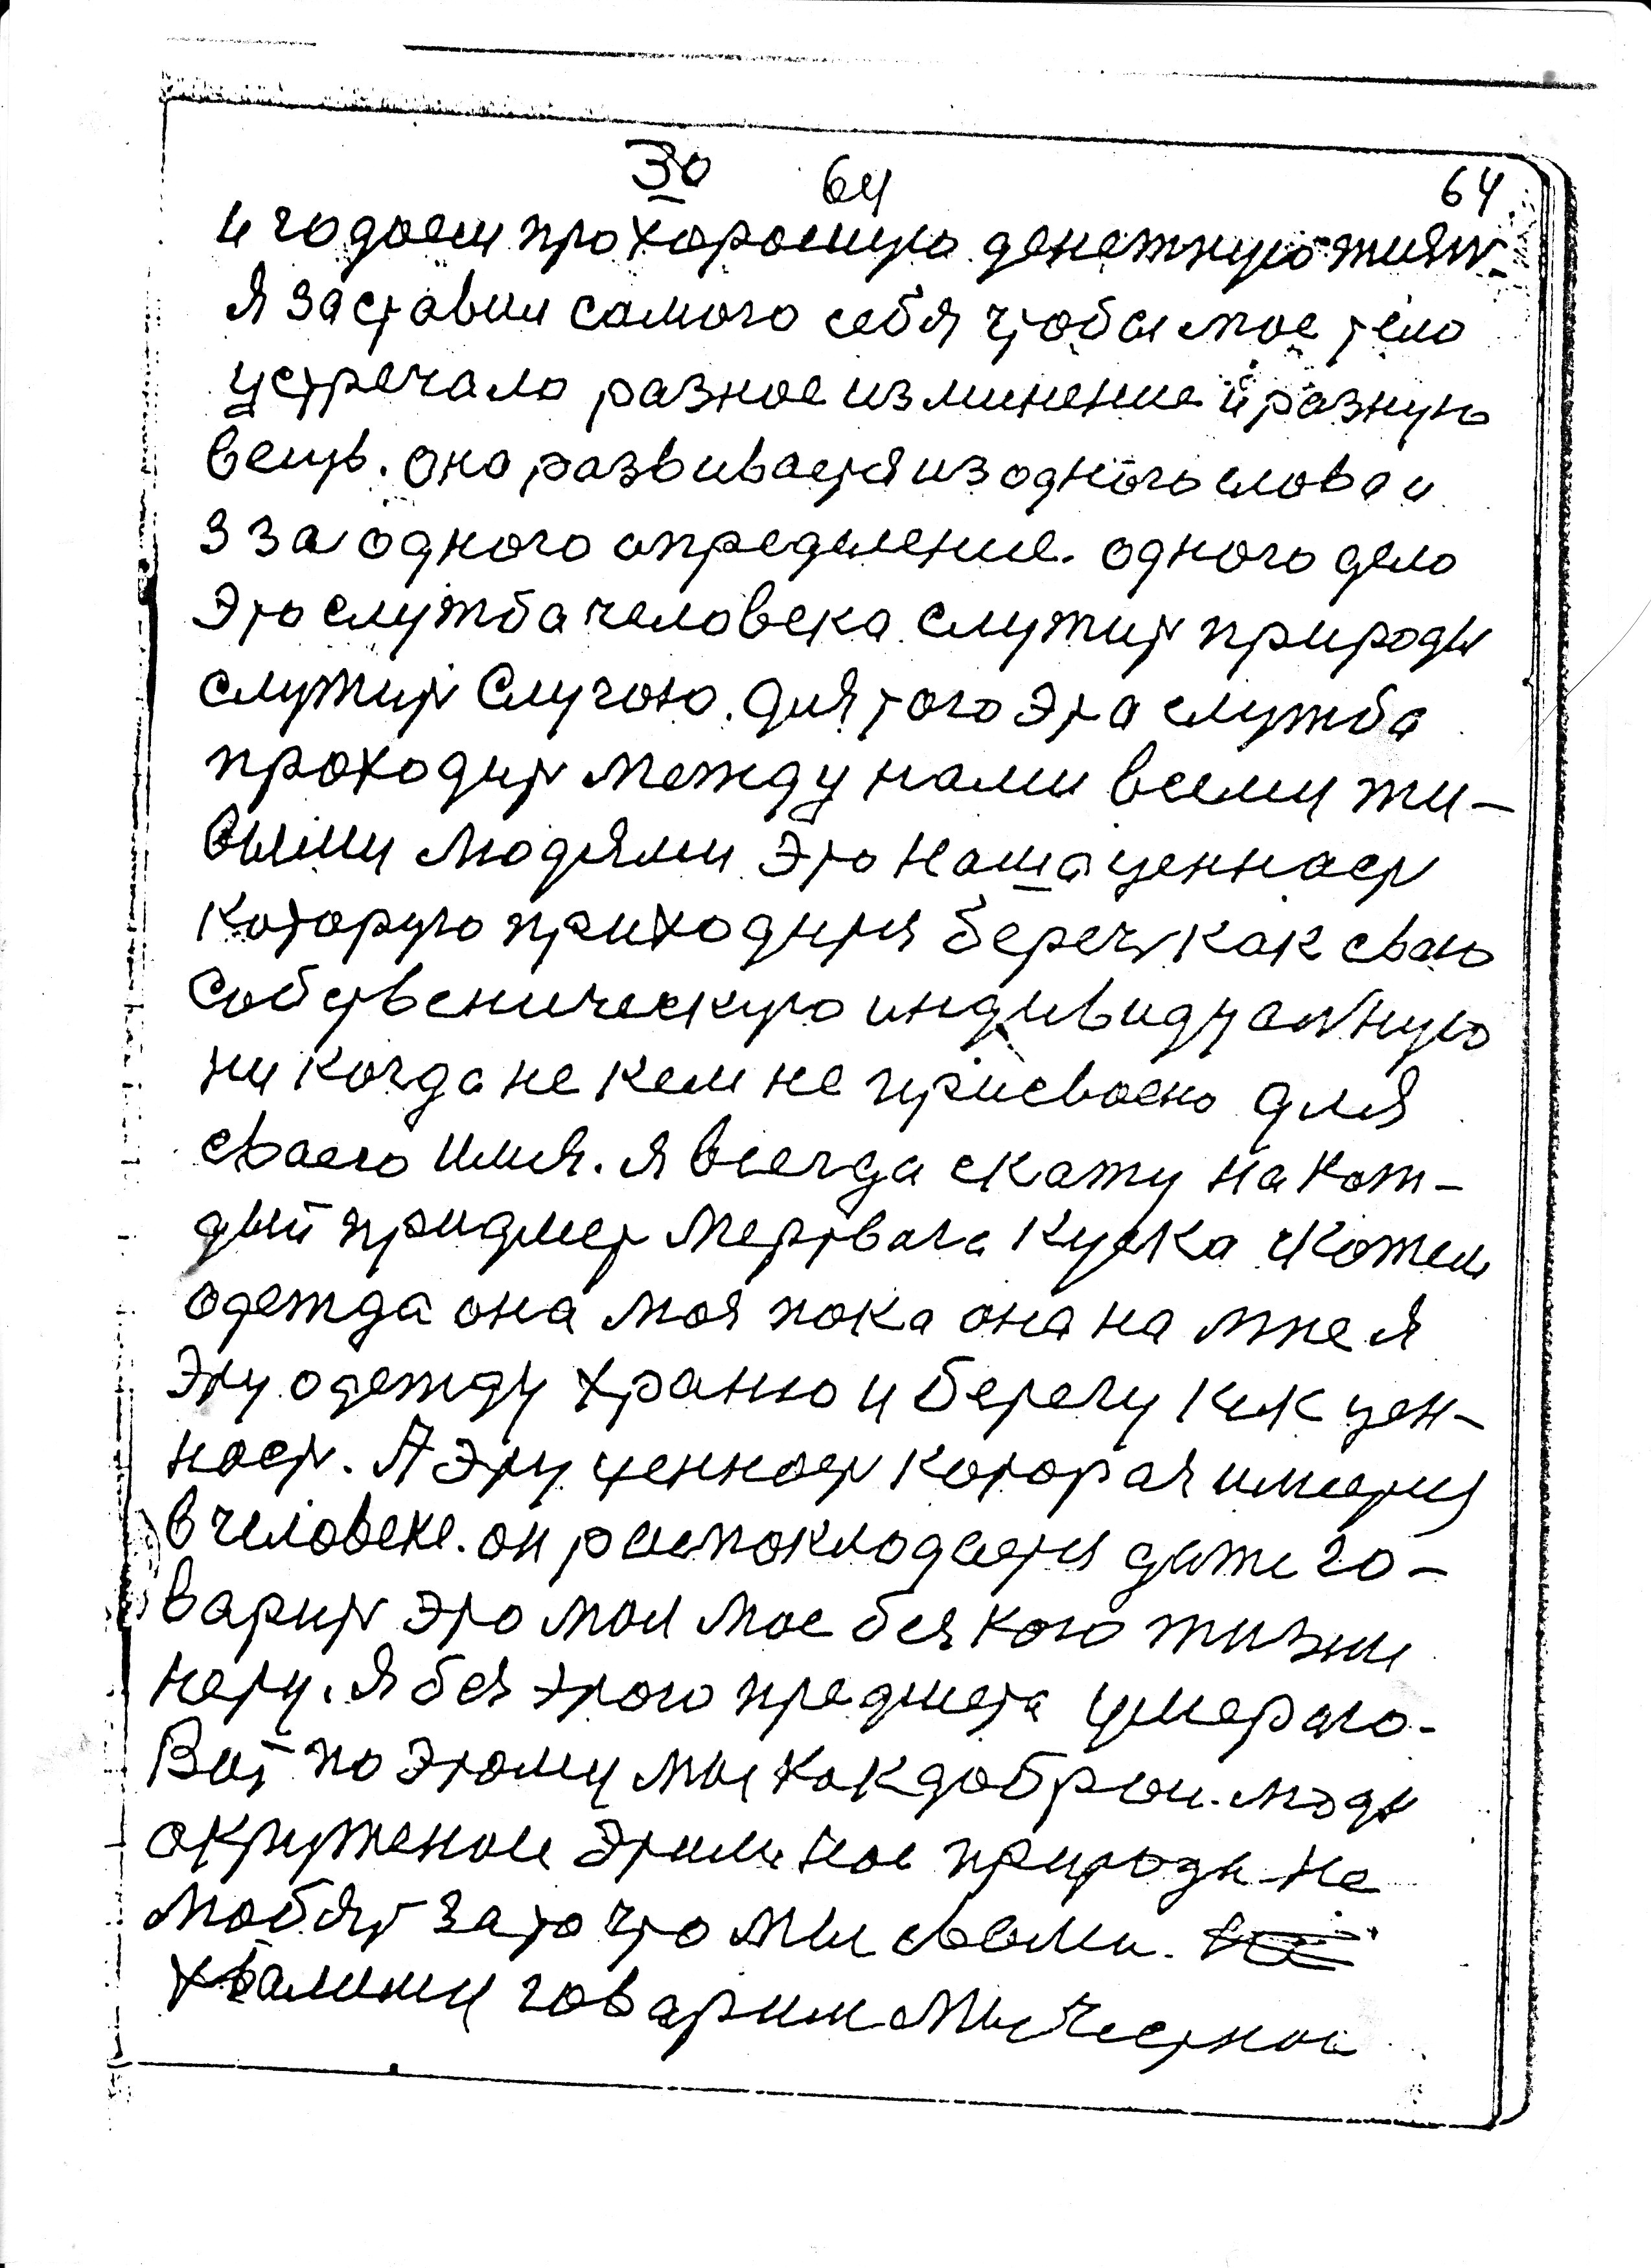 30 64 64
и годаем про хорошую денежную жизн
Я заставил самого себя чтобы мое тело
устречало разное изминение и разную
вещь. оно развивается из одного слова и
зза одного определение. одного дело
Это служба человека служит природы
служит Случаю. для того эта служба
проходит между нами всеми жи-
выми людями Это наша ценност
которую приходится беречь как сваю
Собственическую индивидуалную
ни когда не кем не присваено для
сваего имя. я всегда скажу на каж-
дый придмет мертвага куска скажем
одежда она моя пока она на мне я
Эту одежду храню и берегу как цен-
ност. А эту ценност которая имеется
в человеке. он распокладается даже го-
варит это мои мое без кого жизни
нету. Я без этого предмета умераю.
Вот по этому мы как добрыи люди
окруженои этими нас природы не
любят за то что мы сваеми.
хвалимы говарим мы честнои